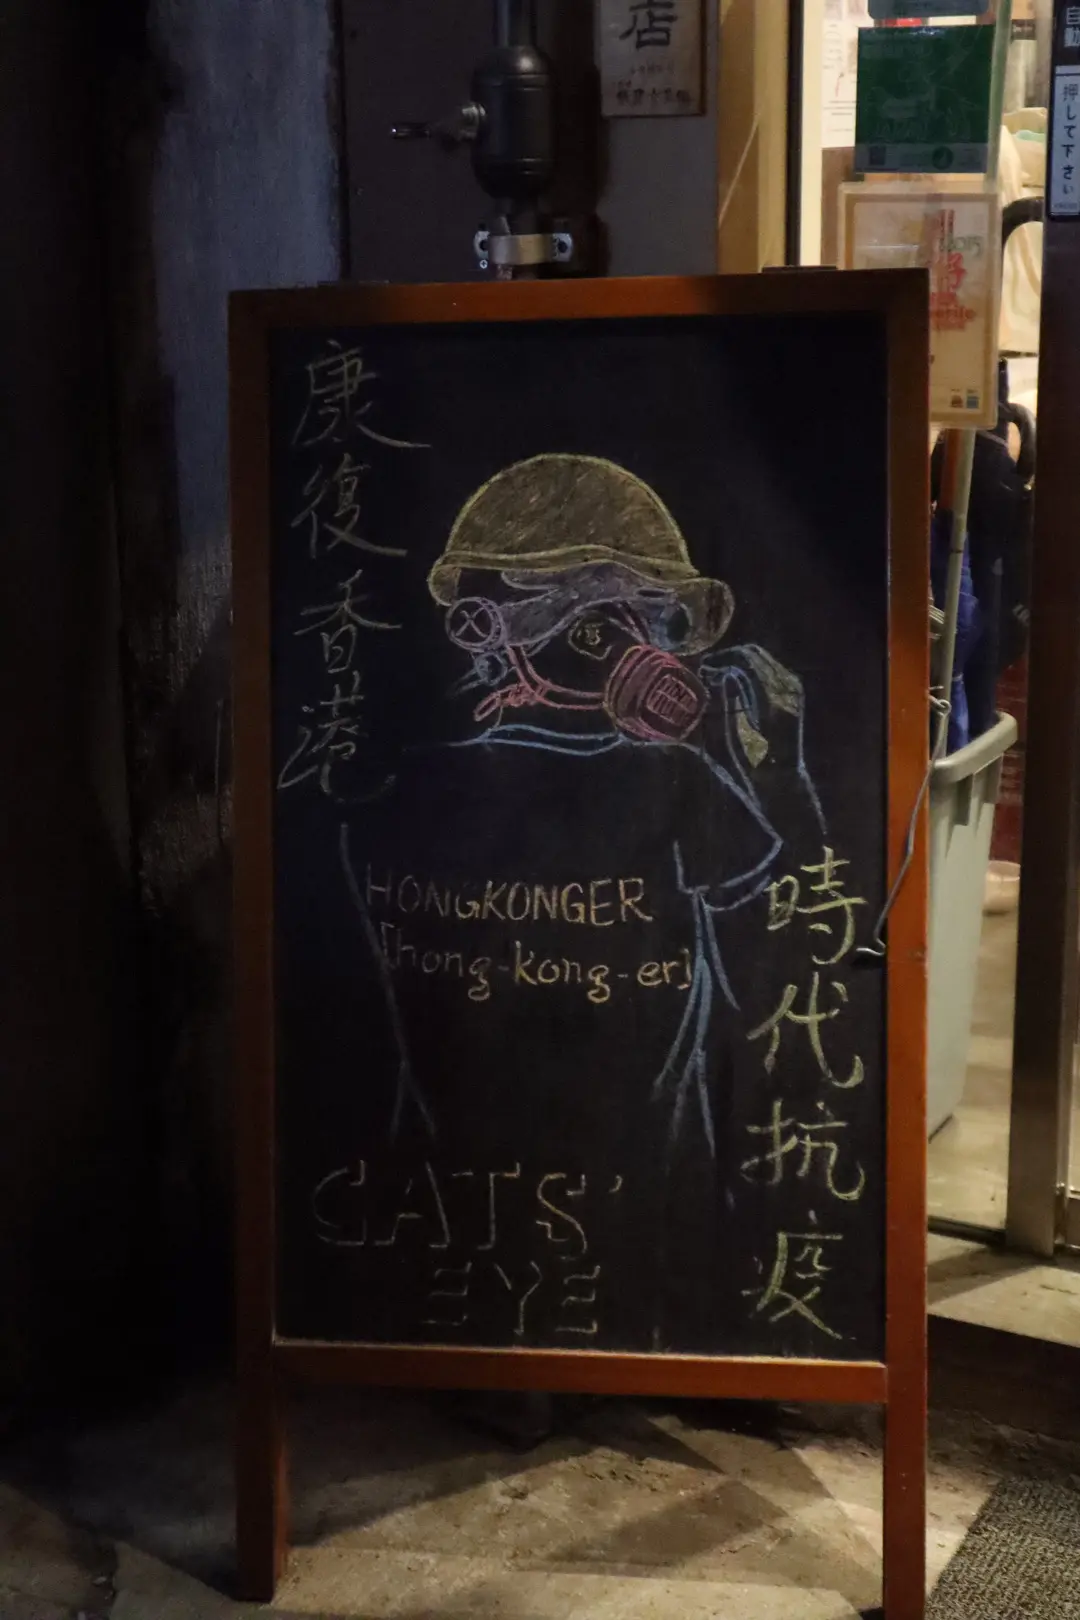 店
自動
押して下さい
2015
康復香港
HONGKONGER
[hong-kong-er]
時代抗疫
CATS'
EYE